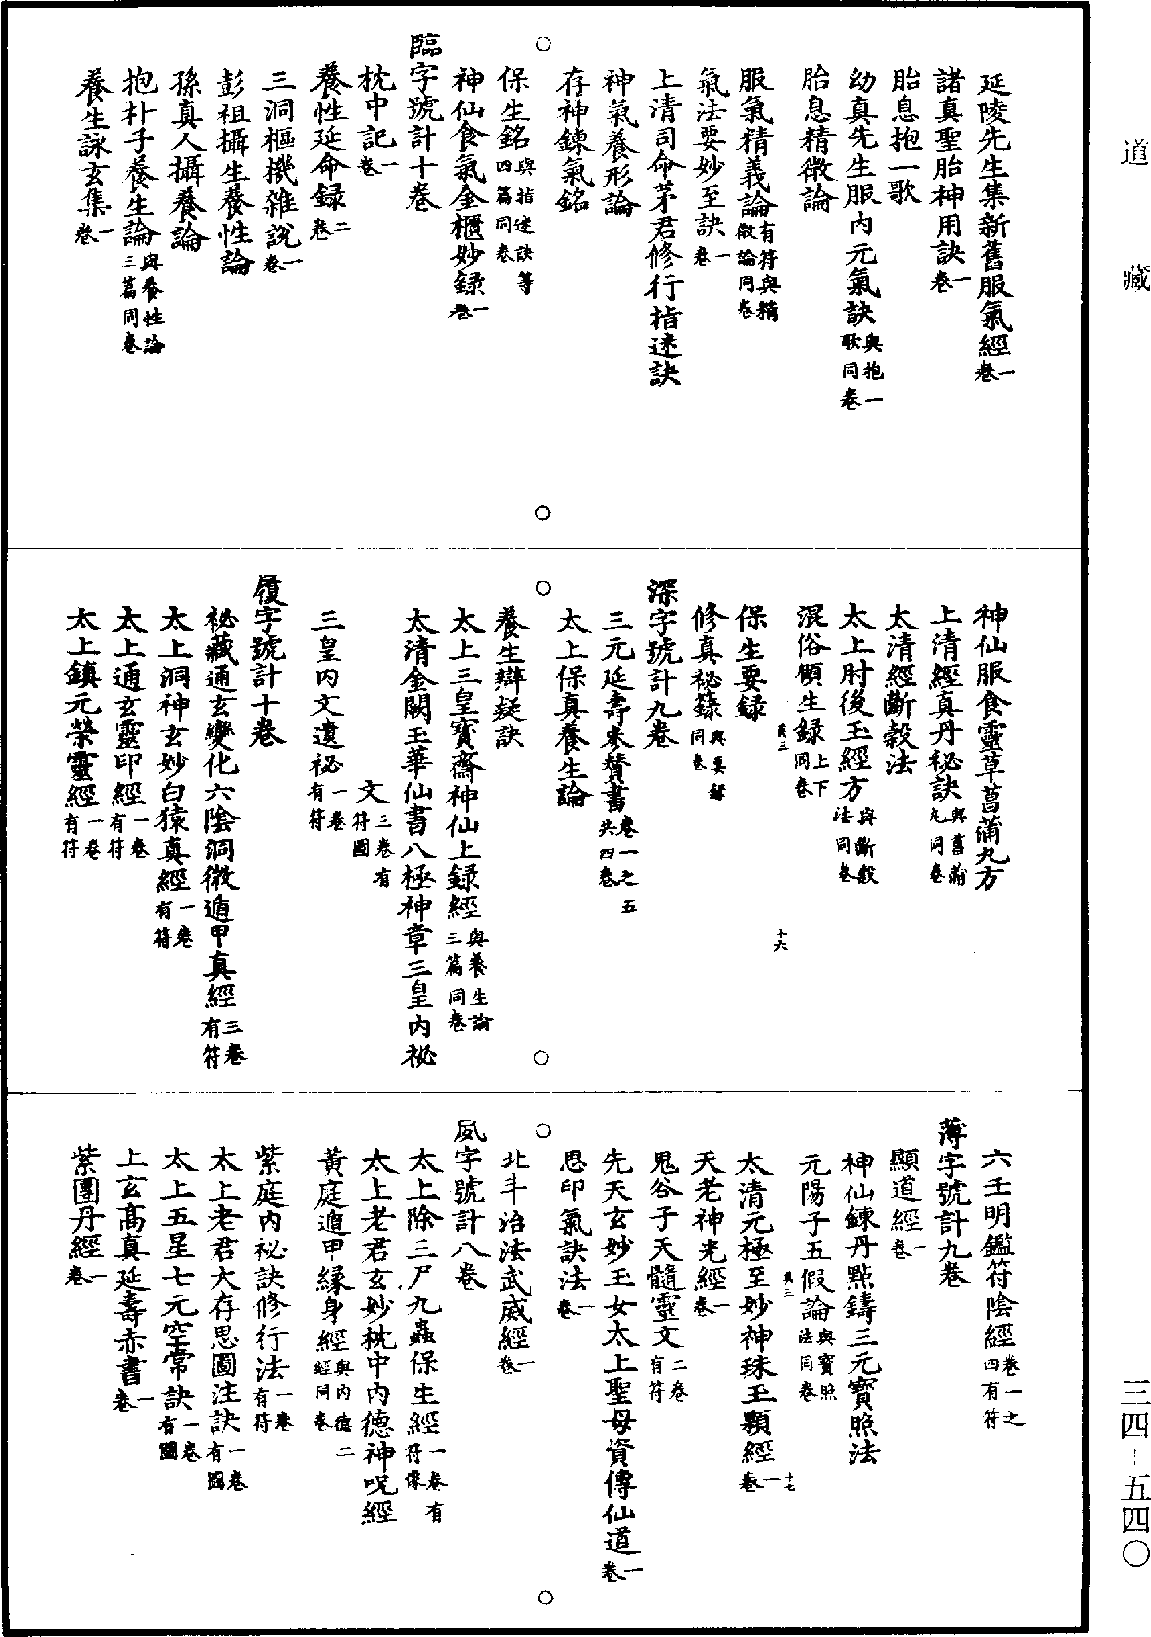 道藏
三四－五四〇
延陵先生集新舊服氣經一卷
諸真聖胎神用訣一卷
胎息抱一歌
幼真先生服內元氣訣與抱一歌同卷
胎息精微論
服氣精義論有符與精微論同卷
氣法要妙至訣一卷
上清司命茅君修行指迷訣
神氣養形論
存神鍊氣銘
保生銘與指迷訣等四篇同卷
神仙食氣金櫃妙録一卷
臨字號計十卷
枕中記一卷
養性延命録二卷
三洞樞機雜說一卷
彭祖攝生養性論
孫真人攝養論
抱朴子養生論與養性論三篇同卷
養生詠玄集一卷
神仙服食靈草菖蒲丸方
上清經真丹秘訣與菖蒲丸同卷
太清經斷穀法
太上肘後玉經方與斷穀法同卷
混俗頤生録上下同卷
英三
十六
保生要録
修真祕籙與要録同卷
深字號計九卷
三元延壽參贊書卷一之五共四卷
太上保真養生論
養生辯疑訣
太上三皇寶齋神仙上録經與養生論三篇同卷
太清金闕玉華仙書八極神章三皇內祕
文三卷有符圖
三皇內文遺祕一卷有符
履字號計十卷
祕藏通玄變化六陰洞微遁甲真經三卷有符
太上洞神玄妙白猿真經一卷有符
太上通玄靈印經一卷有符
太上鎮元榮靈經一卷有符
六壬明鑑符陰經卷一之四有符
薄字號計九卷
顯道經一卷
神仙鍊丹點鑄三元寶照法
元陽子五假論與寶照法同卷
英三
太清元極至妙神珠玉顆經一卷
十七
天老神光經一卷
鬼谷子天髓靈文二卷有符
先天玄妙玉女太上聖母資傳仙道一卷
思印氣訣法一卷
北斗治法武威經一卷
夙字號計八卷
太上除三尸九蟲保生經一卷有符像
太上老君玄妙枕中內德神呪經
黃庭遁甲緣身經與內德二經同卷
紫庭內祕訣修行法一卷有符
太上老君大存思圖注訣一卷有圖
太上五星七元空常訣一卷有圖
上玄高真延壽赤書一卷
紫團丹經一卷